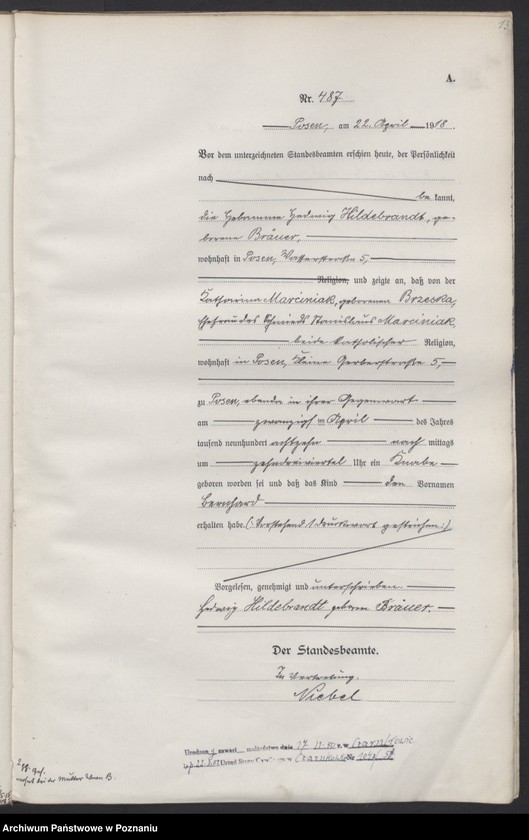 13
A.
Nr. 487
Posen, am 22. April 1918.
Vor dem unterzeichneten Standesbeamten erschien heute, der Persönlichkeit
nach
be kannt,
die Hebamme Hedwig Hildebrandt, ge-
borene Bräuer,
wohnhaft in Posen, Wasserstraße 5,
Religion, und zeigte an, daß von der
Katharina Marciniak, geborenen Brzeska,
Ehefrau des Schmieds Stanislaus Marciniak,
beide katholischer Religion,
wohnhaft in Posen, Kleine Gerberstraße 5,
zu Posen, ebenda in ihrer Gegenwart
am zwanzigsten April des Jahres
tausend neunhundert achtzehn nach mittags
um zehndreiviertel Uhr ein Knabe
geboren worden sei und daß das Kind den Vornamen
Bernhard
erhalten habe. (: Vorstehend 1 Druckwort gestrichen :)
Vorgelesen, genehmigt und unterschrieben.
Hedwig Hildebrandt geborene Bräuer.
Der Standesbeamte.
In Vertretung.
Niebel
małżeństwo dnia 17. w
Urząd Stanu
Archiwum Państwowe w Poznaniu